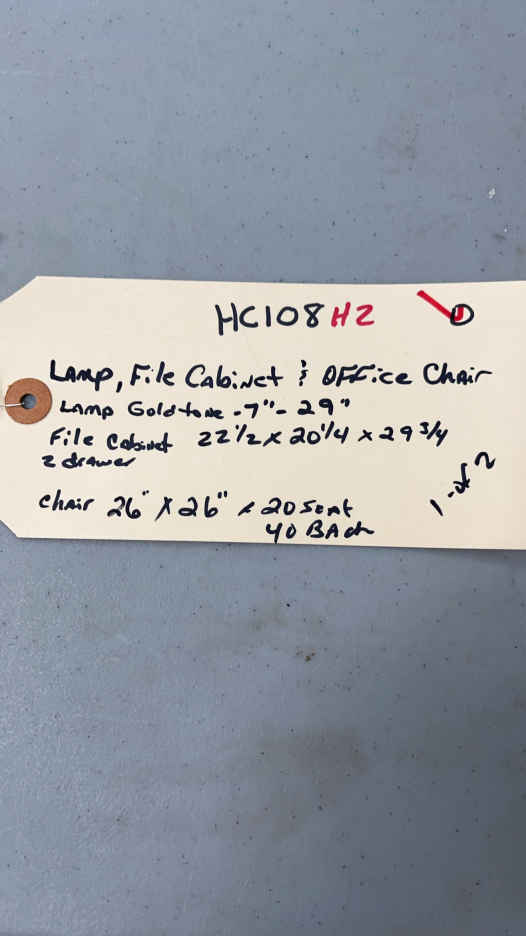 HC108 H2 ①
Lamp, File Cabinet & Office Chair
Lamp Goldtone - 7" - 29"
File Cabinet 22 1/2 x 20 1/4 x 29 3/4
2 drawer
Chair 26" x 26" x 20 Seat
40 Back
1 of 2